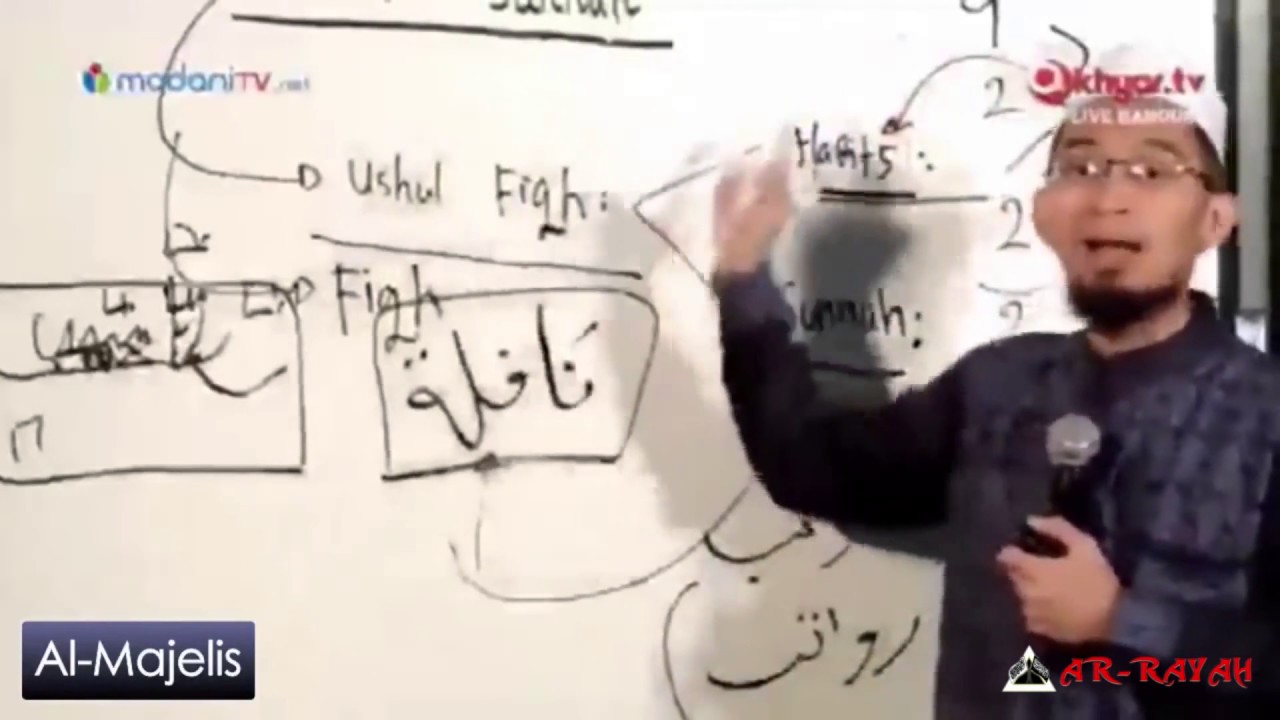 madaniTV.net
akhyar.tv
LIVE BANDUNG
2
Ushul Fiqh:
Hadits:
2
Fiqh
Sunnah:
2
نافلة
رواتب
Al-Majelis
AR-RAYAH